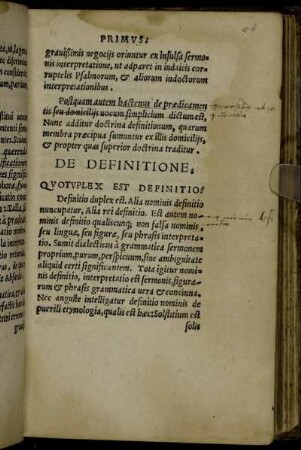 PRIMVS:
grauissimis negocijs oriuntur ex insulsa sermo-
nis interpretatione, ut adparet in iudaicis cor-
ruptelis Psalmorum, & aliorum indoctorum
interpretationibus.
Postquam autem hactenus de prædicamen
tis seu domicilijs uocum simplicium dictum est,
Nunc additur doctrina definitionum, quarum
membra præcipua sumuntur ex illis domicilijs,
& propter quas superior doctrina traditur.
DE DEFINITIONE.
QVOTVPLEX EST DEFINITIO?
Definitio duplex est. Alia nominis definitio
nuncupatur, Alia rei definitio. Est autem nomi
nis definitio qualiscunq; non falsa nominis,
seu linguæ, seu figuræ, seu phrasis interpreta-
tio. Sumit dialecticus à grammatica sermonem
proprium, purum, perspicuum, sine ambiguitate
aliquid certi significantem. Tota igitur nomi-
nis definitio, interpretatio est sermonis, figura-
rum & phrasis grammatica uera & concinna.
Nec anguste intelligatur definitio nominis de
puerili etymologia, qualis est hæc: Solstitium est
solis